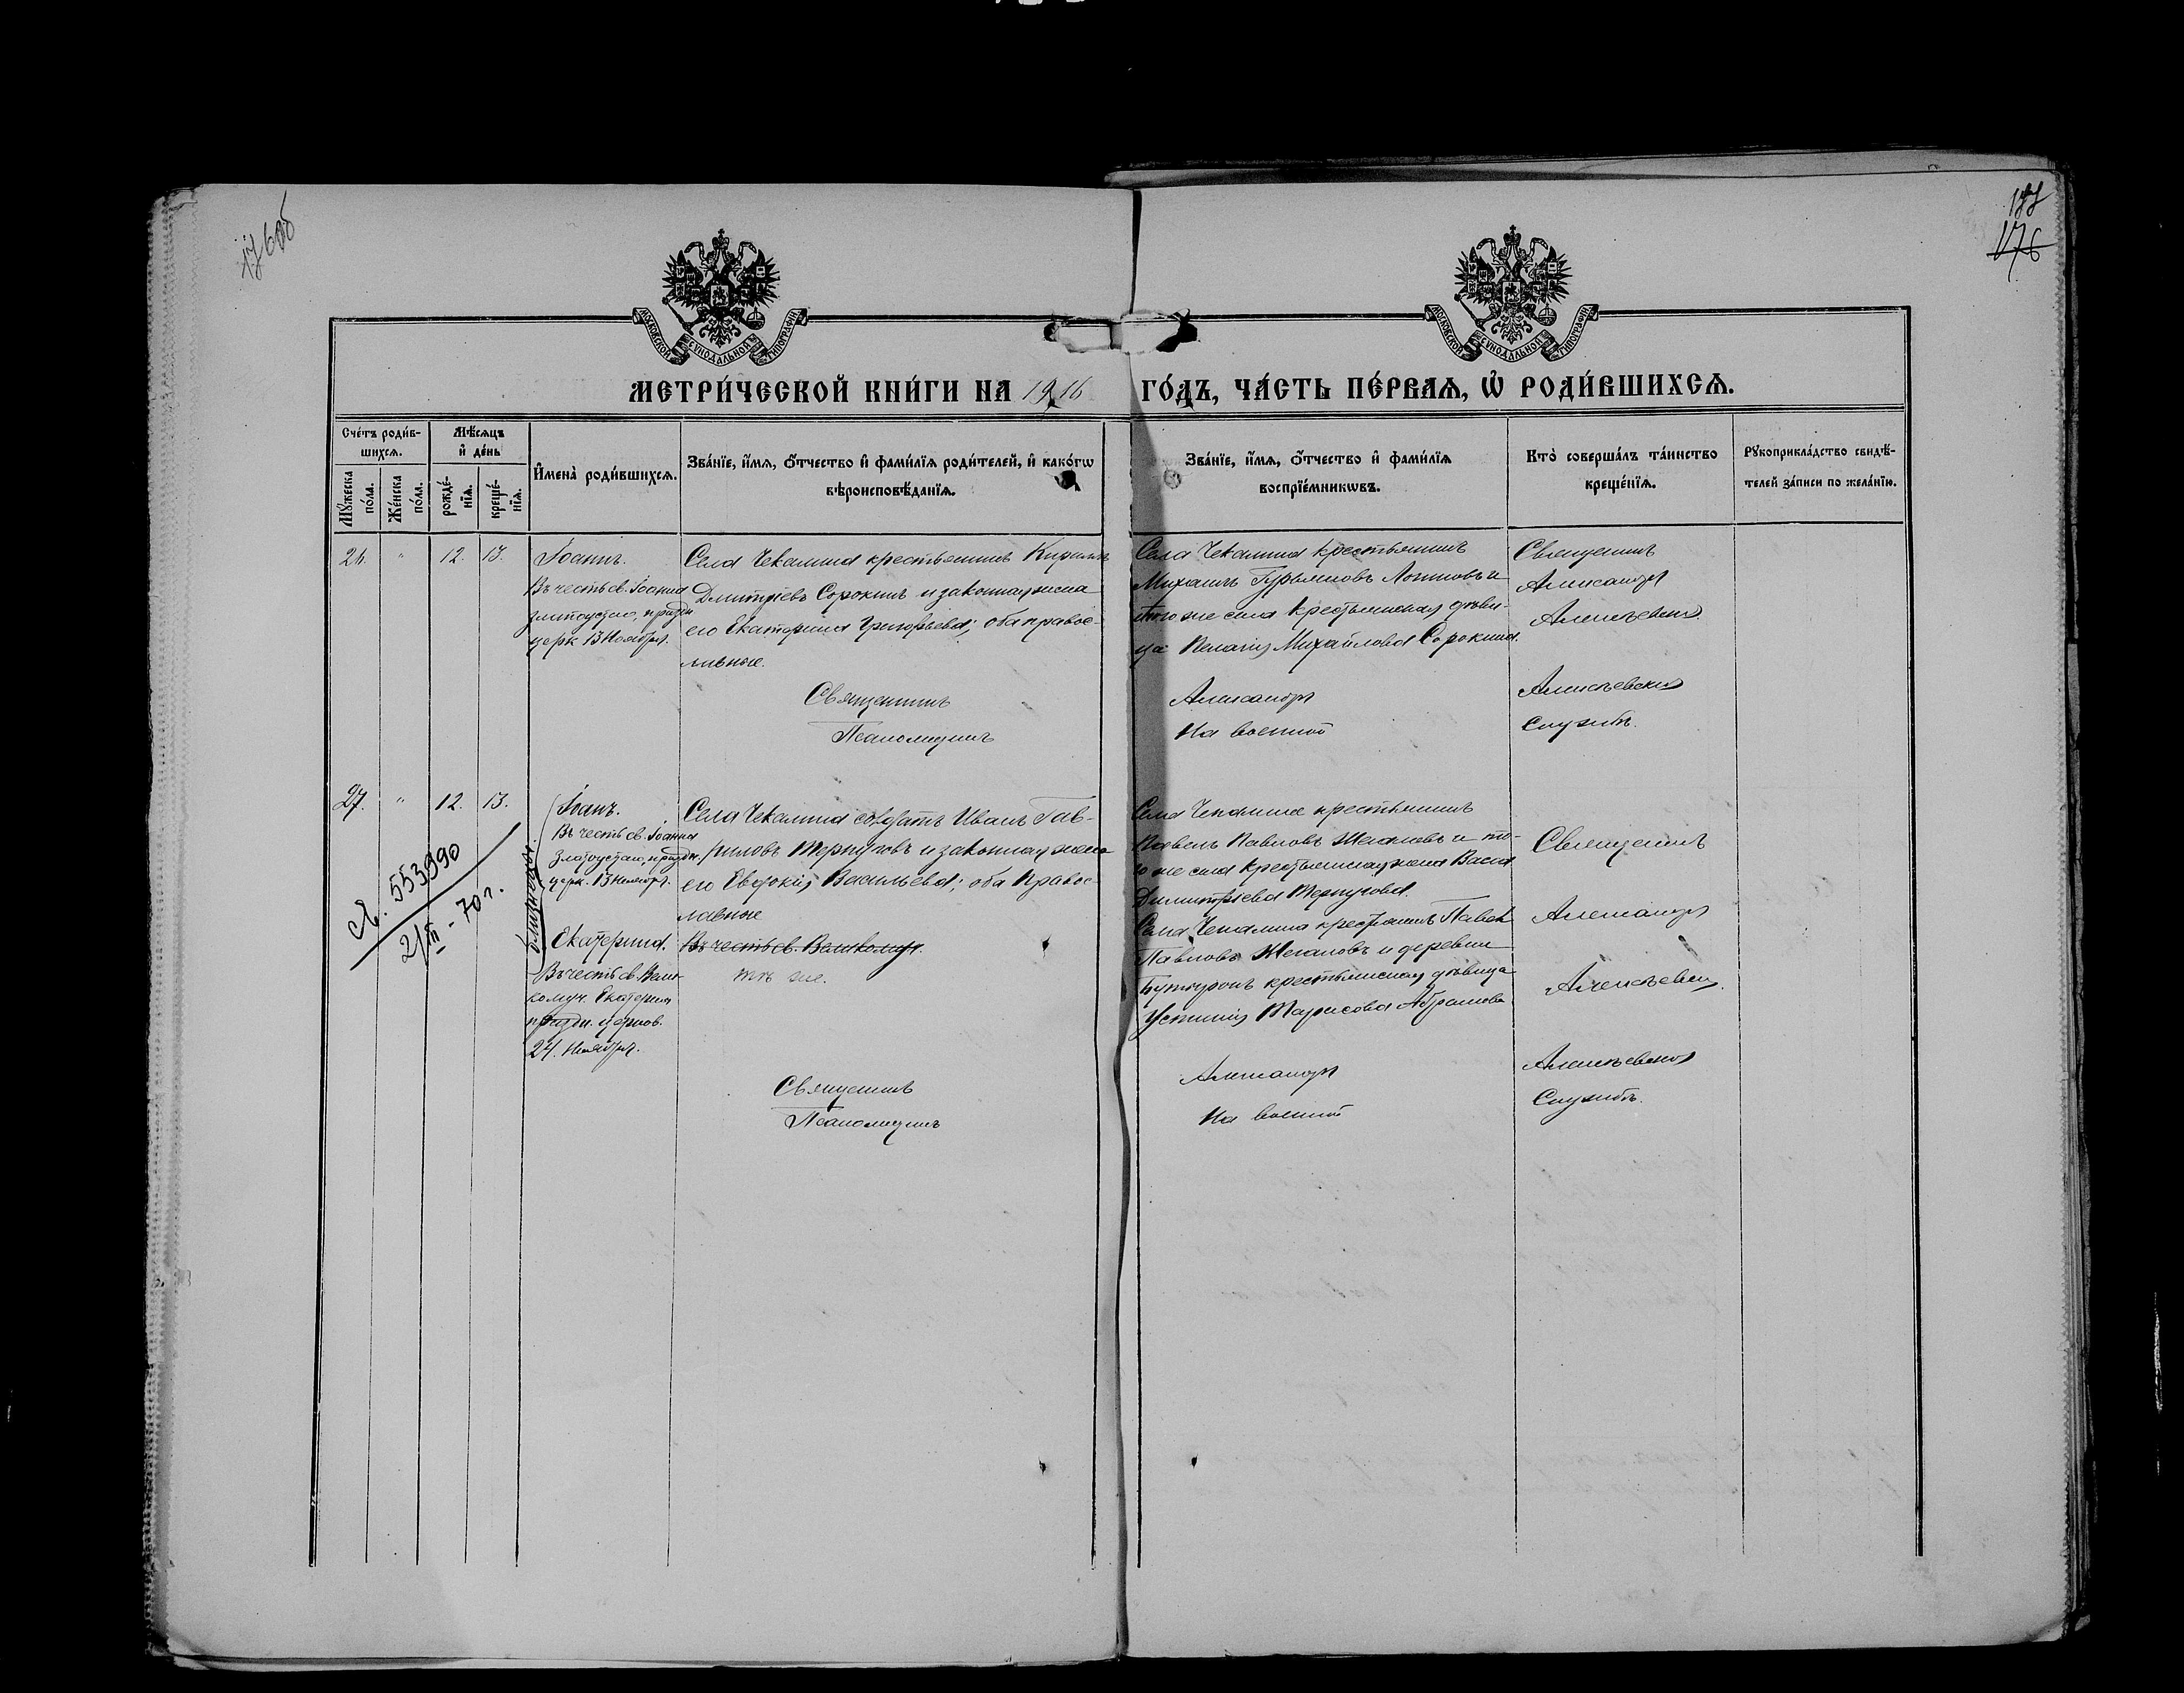 176 об
177
176
МОСКОВСКОЙ СѴНОДАЛЬНОЙ ТИПОГРАФІИ
МОСКОВСКОЙ СѴНОДАЛЬНОЙ ТИПОГРАФІИ
МЕТРИ́ЧЕСКОЙ КНИ́ГИ НА 1916 ГО́ДЪ, ЧА́СТЬ ПЕ́РВАѦ, Ѡ҆ РОДИ́ВШИХСѦ.
Сче́тъ роди́в-
шихсѧ.
Мꙋ́жеска
по́ла.
Же́нска
по́ла.
Мѣ́сѧцъ
и҆ де́нь
рожде́-
нїѧ.
креще́-
нїѧ.
И҆мена̀ роди́вшихсѧ.
Зва́нїе, и҆́мѧ, ѻ҆́тчество и҆ фами́лїѧ роди́телей, и҆ како́гѡ
вѣроисповѣ́данїѧ.
Зва́нїе, и҆́мѧ, ѻ҆́тчество и҆ фами́лїѧ
воспрїе́мникѡвъ.
Кто̀ соверша́лъ та́инство
креще́нїѧ.
Рꙋкоприкла́дство свидѣ́-
телей за́писи по жела́нїю.
26. " 12. 13.
Іоаннъ.
Въ честь св. Іоанна
Златоустаго, праздн.
церк. 13 Ноября.
Села Чекалина крестьянинъ Кириллъ
Дмитріевъ Сорокинъ и законная жена
его Екатерина Григорьева; оба правос-
лавные.
Села Чекалина крестьянинъ
Михаилъ Гурьяновъ Логиновъ и
того же села крестьянская дѣви-
ца Пелагія Михайлова Сорокина.
Священникъ
Александръ
Алексѣевскій.
Священникъ Александръ Алексѣевскій
Псаломщикъ На военной службѣ.
27. " 12. 13.
Іоанъ.
Въ честь св. Іоанна
Златоустаго, праздн.
церк. 13 Ноября.
553990
2/III - 70 г.
Екатерина.
Въ честь св. Вели-
комуч. Екатерины
праздн. церков.
24. Ноября.
Села Чекалина солдатъ Иванъ Гав-
риловъ Терпуговъ и законная жена
его Евдокія Васильева; оба Правос-
лавные
Въ честь св. Великомуч.
тѣ же.
Села Чекалина крестьянинъ
Павелъ Павловъ Жегаловъ и то-
го же села крестьянская жена Васса
Димитріева Терпугова.
Села Чекалина крестьянинъ Павелъ
Павловъ Жегаловъ и деревни
крестьянская дѣвица
Устинія Тарасова Абрамова
Священникъ
Александръ
Алексѣевскій.
Священникъ Александръ Алексѣевскій
Псаломщикъ На военной службѣ.